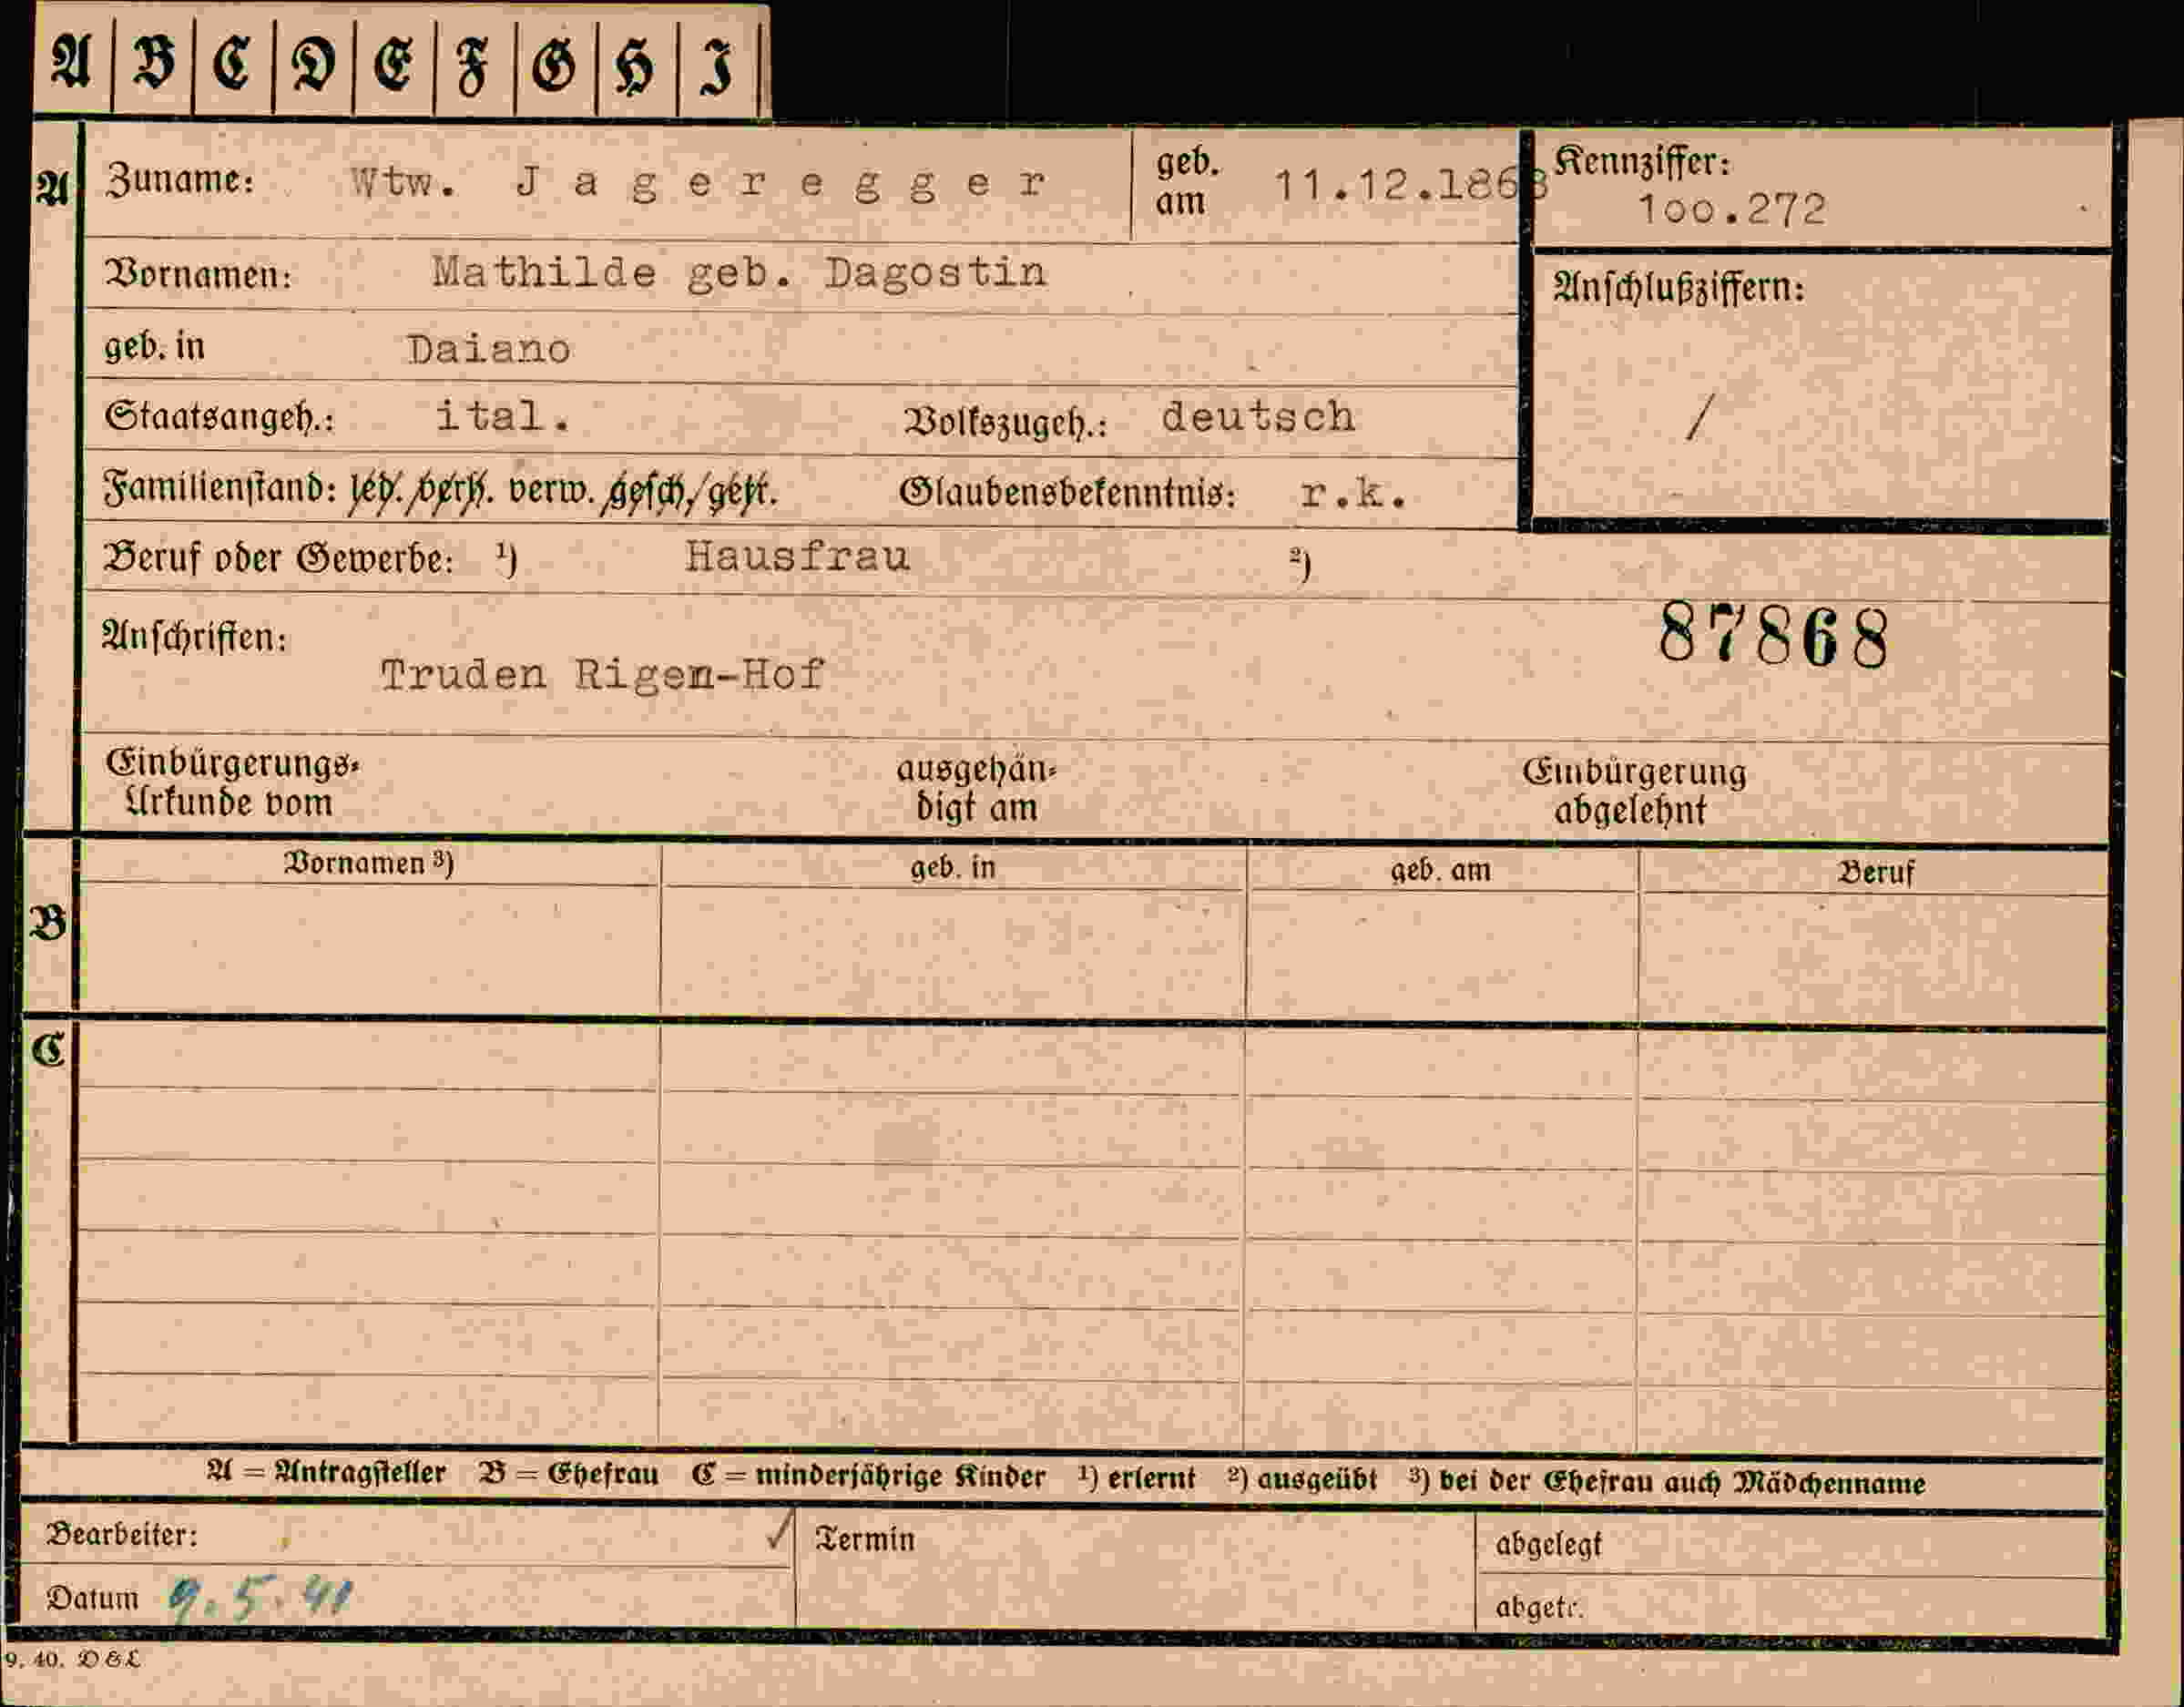 A B C D E F G H I
A Zuname: Wtw. Jageregger geb. am 11.12.1868 Kennziffer: 1oo.272
Vornamen: Mathilde geb. Dagostin Anschlußziffern:
geb. in Daiano
Staatsangeh.: ital. Volkszugeh.: deutsch /
Familienstand: led. verh. verw. gesch. getr. Glaubensbekenntnis: r.k.
Beruf oder Gewerbe: ¹) Hausfrau ²)
Anschriften: 87868
Truden Rigen-Hof
Einbürgerungs- ausgehän- Einbürgerung
Urkunde vom digt am abgelehnt
Vornamen ³) geb. in geb. am Beruf
B
C
A = Antragsteller B = Ehefrau C = minderjährige Kinder ¹) erlernt ²) ausgeübt ³) bei der Ehefrau auch Mädchenname
Bearbeiter: ✓ Termin abgelegt
Datum 9.5.41 abgetr.
9. 40. D & L